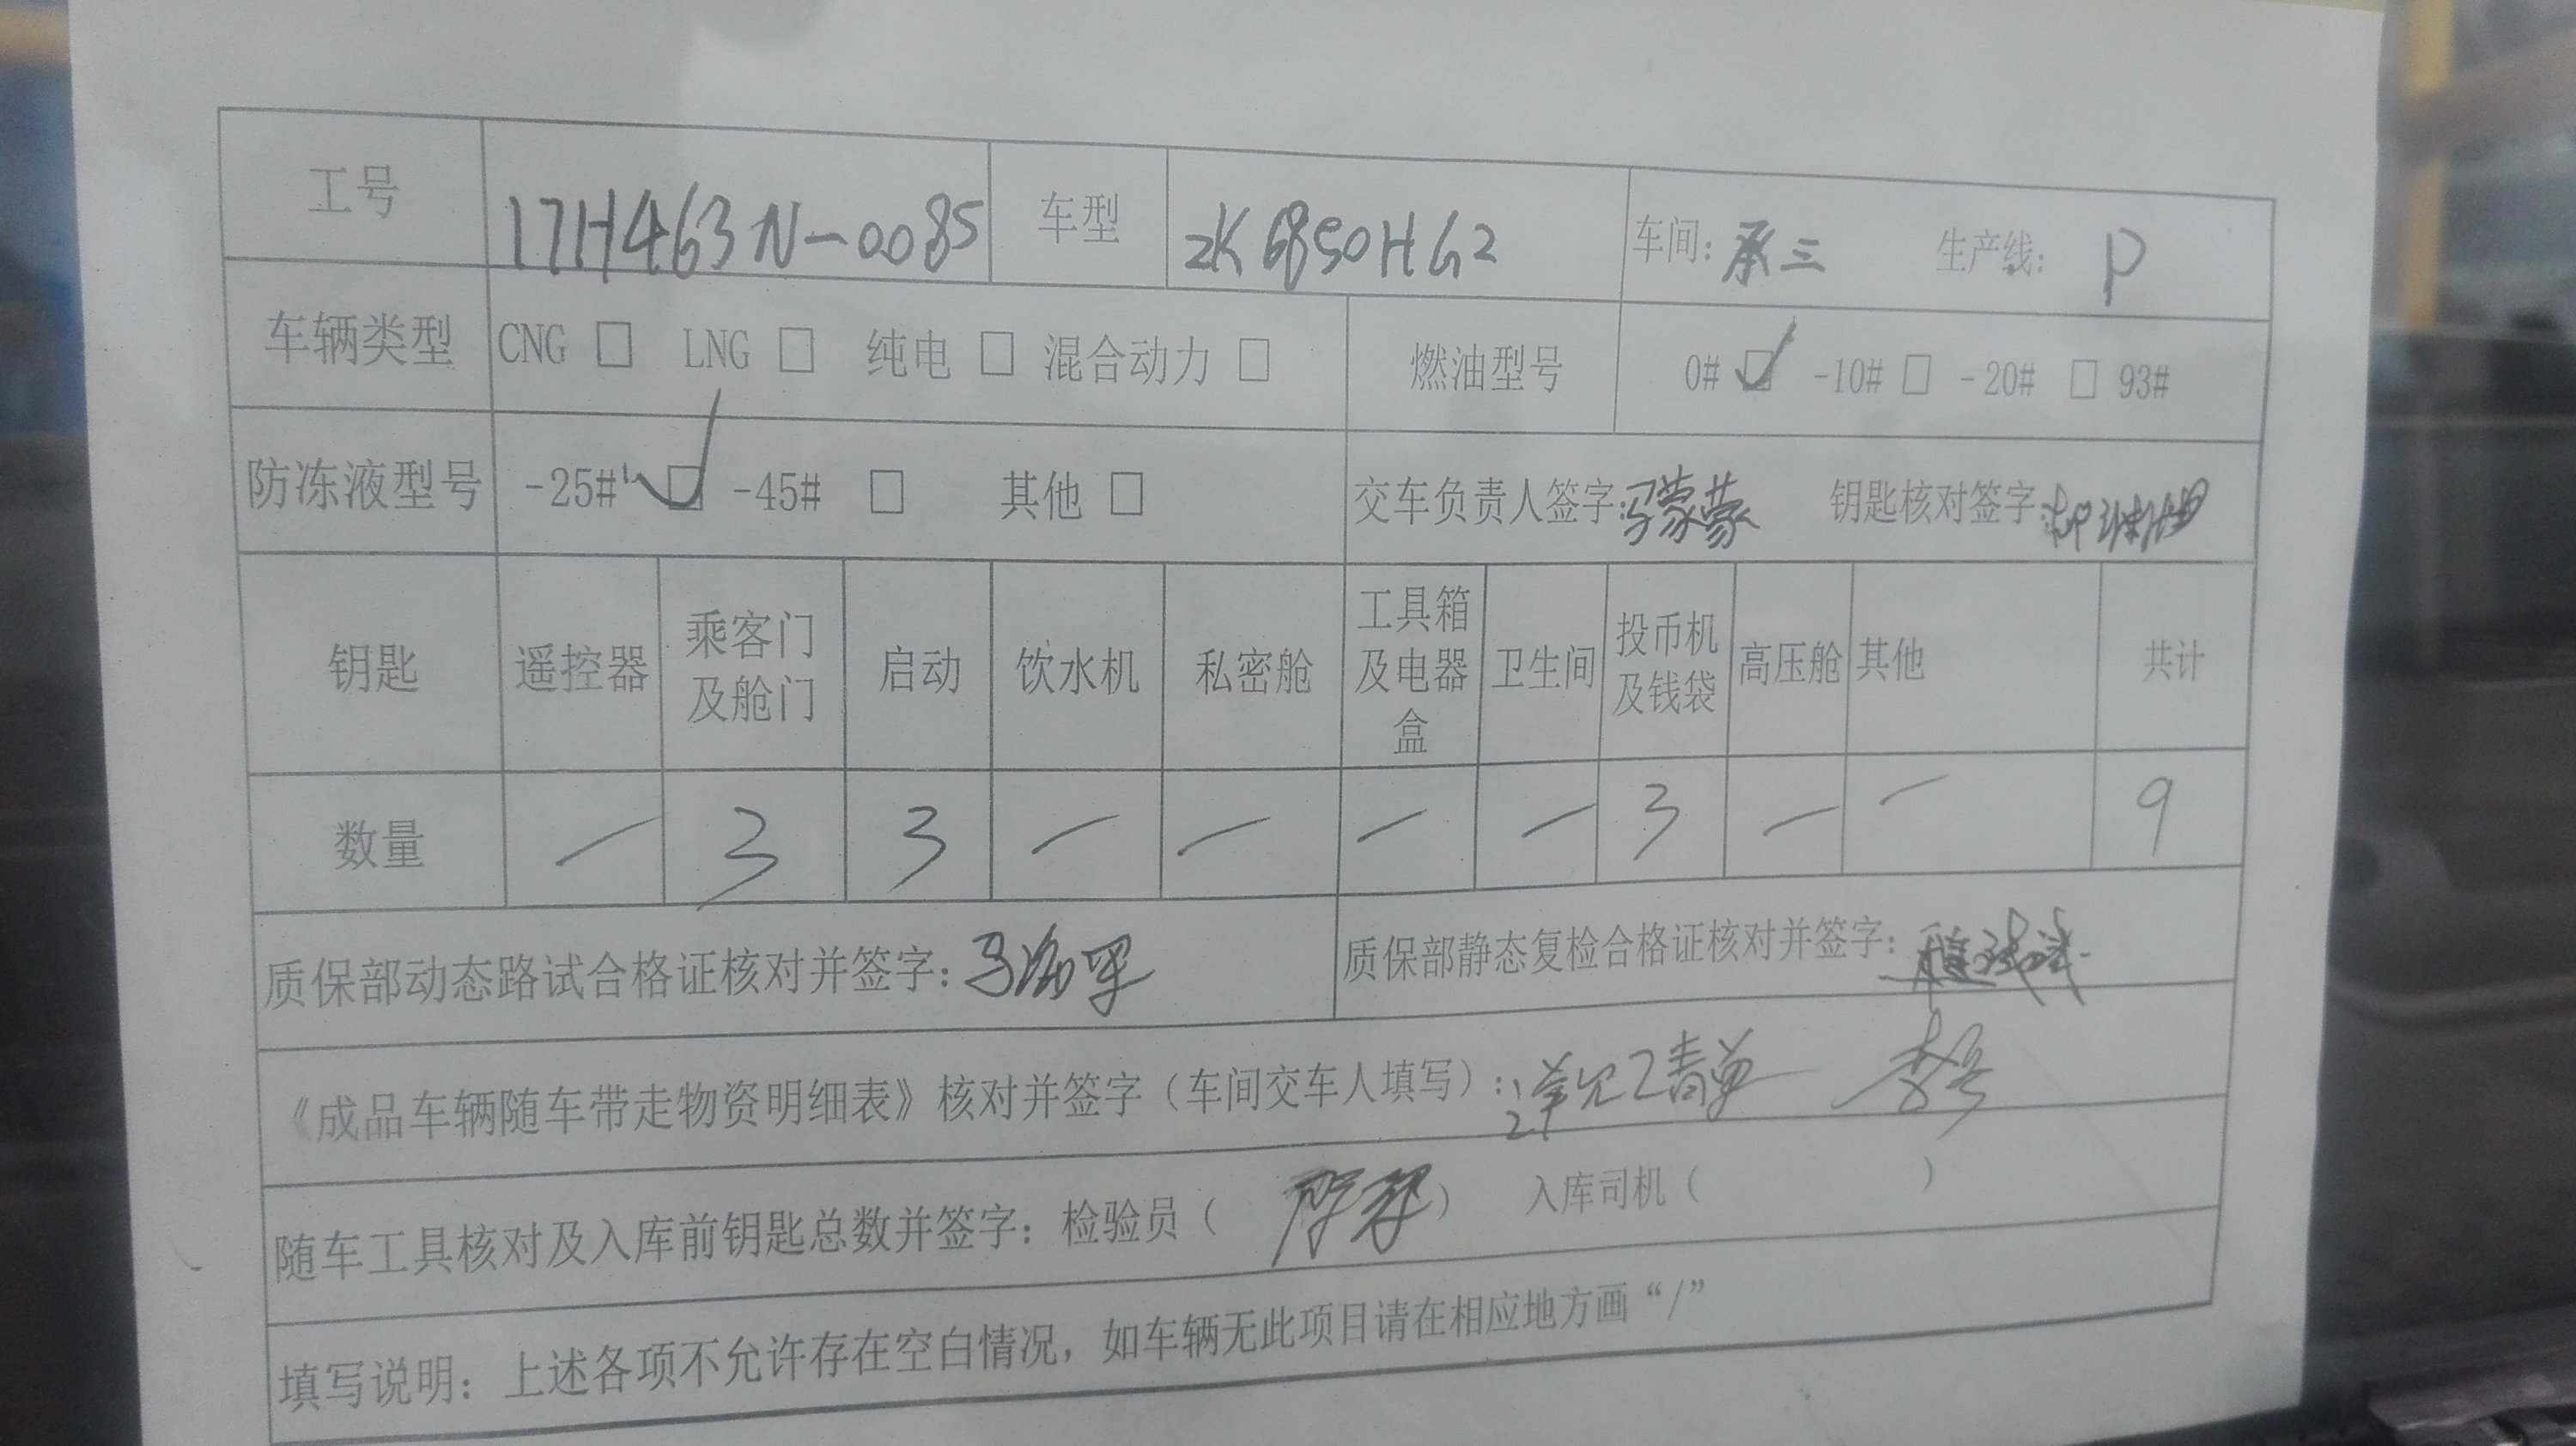 工号 17H463N-0085 车型 ZK6850HG2 车间: 承三 生产线: P
车辆类型 CNG □ LNG □ 纯电 □ 混合动力 □ 燃油型号 0# ☑ -10# □ -20# □ 93#
防冻液型号 -25# ☑ -45# □ 其他 □ 交车负责人签字: 冯蒙蒙 钥匙核对签字:
钥匙 遥控器 乘客门及舱门 启动 饮水机 私密舱 工具箱及电器盒 卫生间 投币机及钱袋 高压舱 其他 共计
数量 / 3 3 / / / / 3 / / 9
质保部动态路试合格证核对并签字: 质保部静态复检合格证核对并签字:
《成品车辆随车带走物资明细表》核对并签字（车间交车人填写）:
随车工具核对及入库前钥匙总数并签字: 检验员（ ） 入库司机（ ）
填写说明: 上述各项不允许存在空白情况，如车辆无此项目请在相应地方画“/”